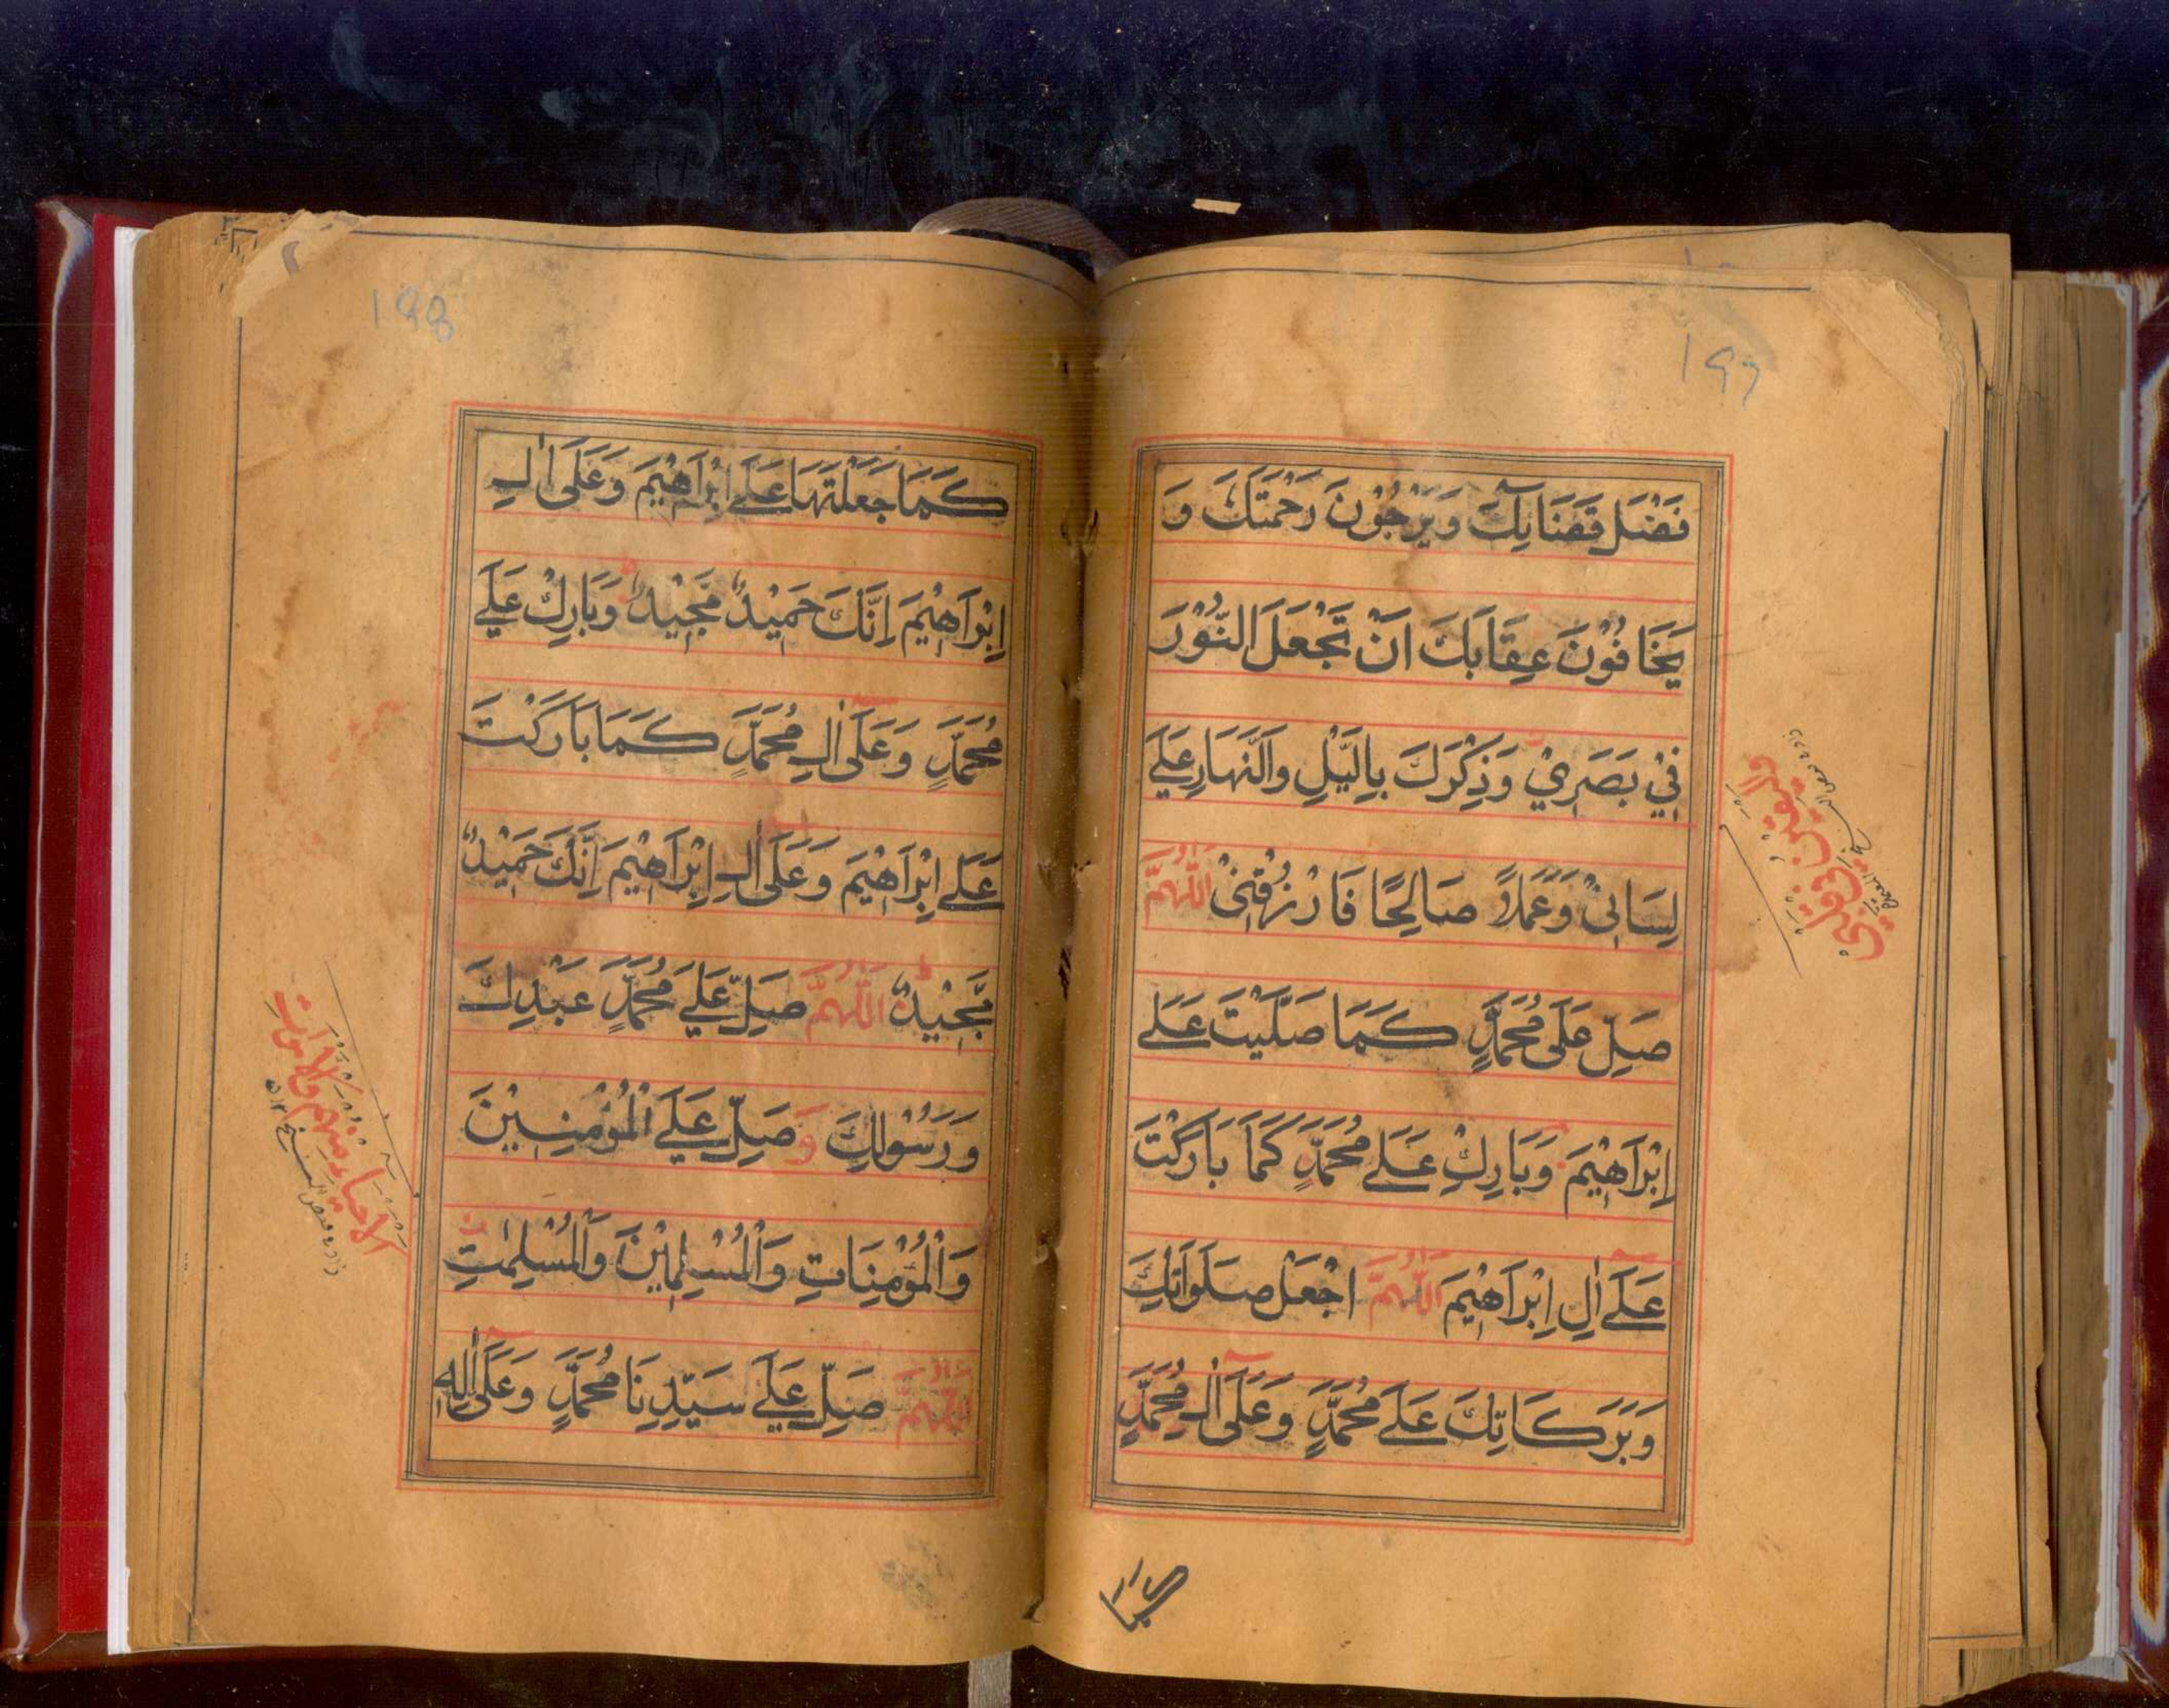 197
فَضْلَ قَضَائِكَ وَيَرْجُوْنَ رَحْمَتَكَ وَ
يَخَافُوْنَ عِقَابَكَ اَنْ تَجْعَلَ النُّوْرَ
فِيْ بَصَرِيْ وَذِكْرَكَ بِالَّيْلِ وَالنَّهَارِ عَلَے
لِسَانِيْ وَعَمَلًا صَالِحًا فَارْزُقْنِيْ اَللّٰهُمَّ
صَلِّ عَلَى مُحَمَّدٍ كَمَا صَلَّيْتَ عَلَے
اِبْرَاهِيْمَ وَبَارِكْ عَلَے مُحَمَّدٍ كَمَا بَارَكْتَ
عَلَے اٰلِ اِبْرَاهِيْمَ اَللّٰهُمَّ اجْعَلْ صَلَوَاتِكَ
وَبَرَكَاتِكَ عَلَے مُحَمَّدٍ وَعَلَى اٰلِ مُحَمَّدٍ
كما
198
كَمَا جَعَلْتَهَا عَلَے اِبْرَاهِيْمَ وَعَلَى اٰلِ
اِبْرَاهِيْمَ اِنَّكَ حَمِيْدٌ مَّجِيْدٌ وَبَارِكْ عَلَے
مُحَمَّدٍ وَعَلَى اٰلِ مُحَمَّدٍ كَمَا بَارَكْتَ
عَلَے اِبْرَاهِيْمَ وَعَلَى اٰلِ اِبْرَاهِيْمَ اِنَّكَ حَمِيْدٌ
مَّجِيْدٌ اَللّٰهُمَّ صَلِّ عَلَے مُحَمَّدٍ عَبْدِكَ
وَرَسُوْلِكَ وَصَلِّ عَلَے الْمُؤْمِنِيْنَ
وَالْمُؤْمِنَاتِ وَالْمُسْلِمِيْنَ وَالْمُسْلِمٰتِ
الاحياء منهم والاموات
اَللّٰهُمَّ صَلِّ عَلَے سَيِّدِنَا مُحَمَّدٍ وَعَلَى اٰلِهِ